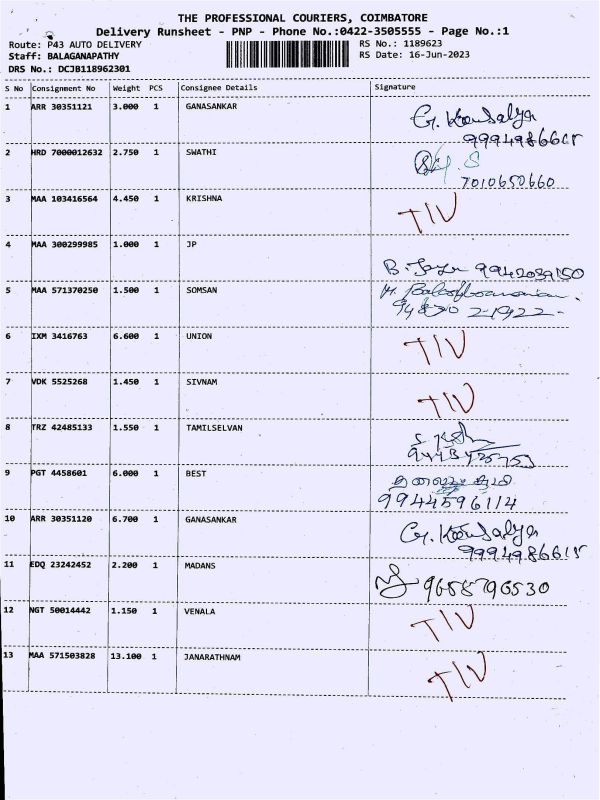 THE PROFESSIONAL COURIERS, COIMBATORE
Delivery Runsheet - PNP - Phone No.:0422-3505555 - Page No.:1
Route: P43 AUTO DELIVERY RS No.: 1189623
Staff: BALAGANAPATHY RS Date: 16-Jun-2023
DRS No.: DCJB118962301
S No Consignment No Weight PCS Consignee Details Signature
1 ARR 30351121 3.000 1 GANASANKAR G. Kousalya
9994986615
2 HRD 7000012632 2.750 1 SWATHI
7010650660
3 MAA 103416564 4.450 1 KRISHNA TIV
4 MAA 300299985 1.000 1 JP
9942039150
5 MAA 571370250 1.500 1 SOMSAN
6 IXM 3416763 6.600 1 UNION TIV
7 VDK 5525268 1.450 1 SIVNAM TIV
8 TRZ 42485133 1.550 1 TAMILSELVAN
9 PGT 4458601 6.000 1 BEST
9944596114
10 ARR 30351120 6.700 1 GANASANKAR G. Kousalya
9994986615
11 EDQ 23242452 2.200 1 MADANS 9658796530
12 NGT 50014442 1.150 1 VENALA TIV
13 MAA 571503828 13.100 1 JANARATHNAM TIV